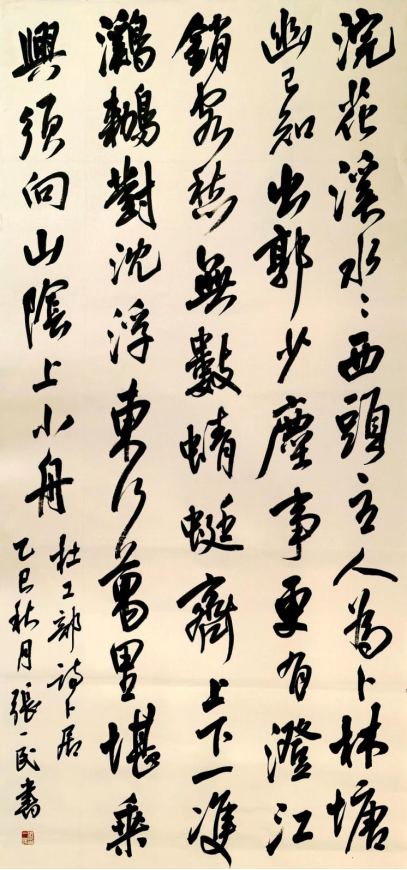 浣花溪水水西頭主人為卜林塘
幽已知出郭少塵事更有澄江
銷客愁無數蜻蜓齊上下一雙
鸂鶒對沈浮東行萬里堪乘
興須向山陰上小舟
杜工部詩卜居
乙巳秋月張一民書